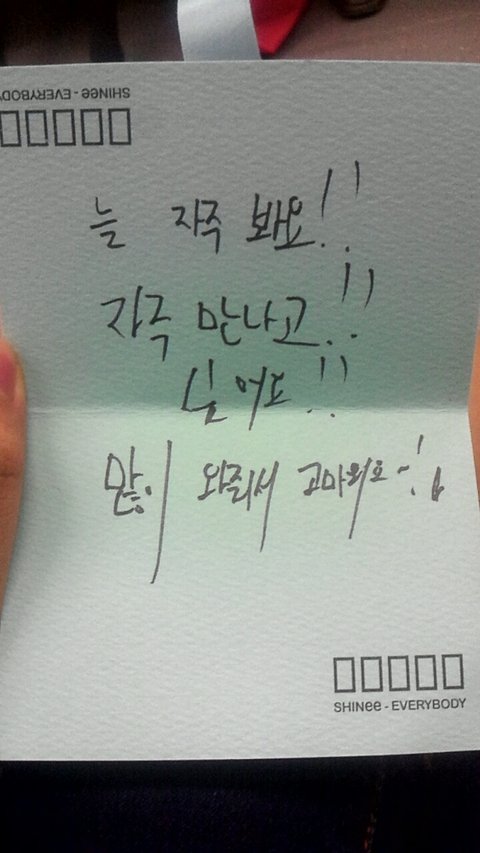 SHINee - EVERYBODY
늘 자주 봐요!!
자주 만나고!!
싶어요!!
많이 와줘서 고마워요~!!
SHINee - EVERYBODY